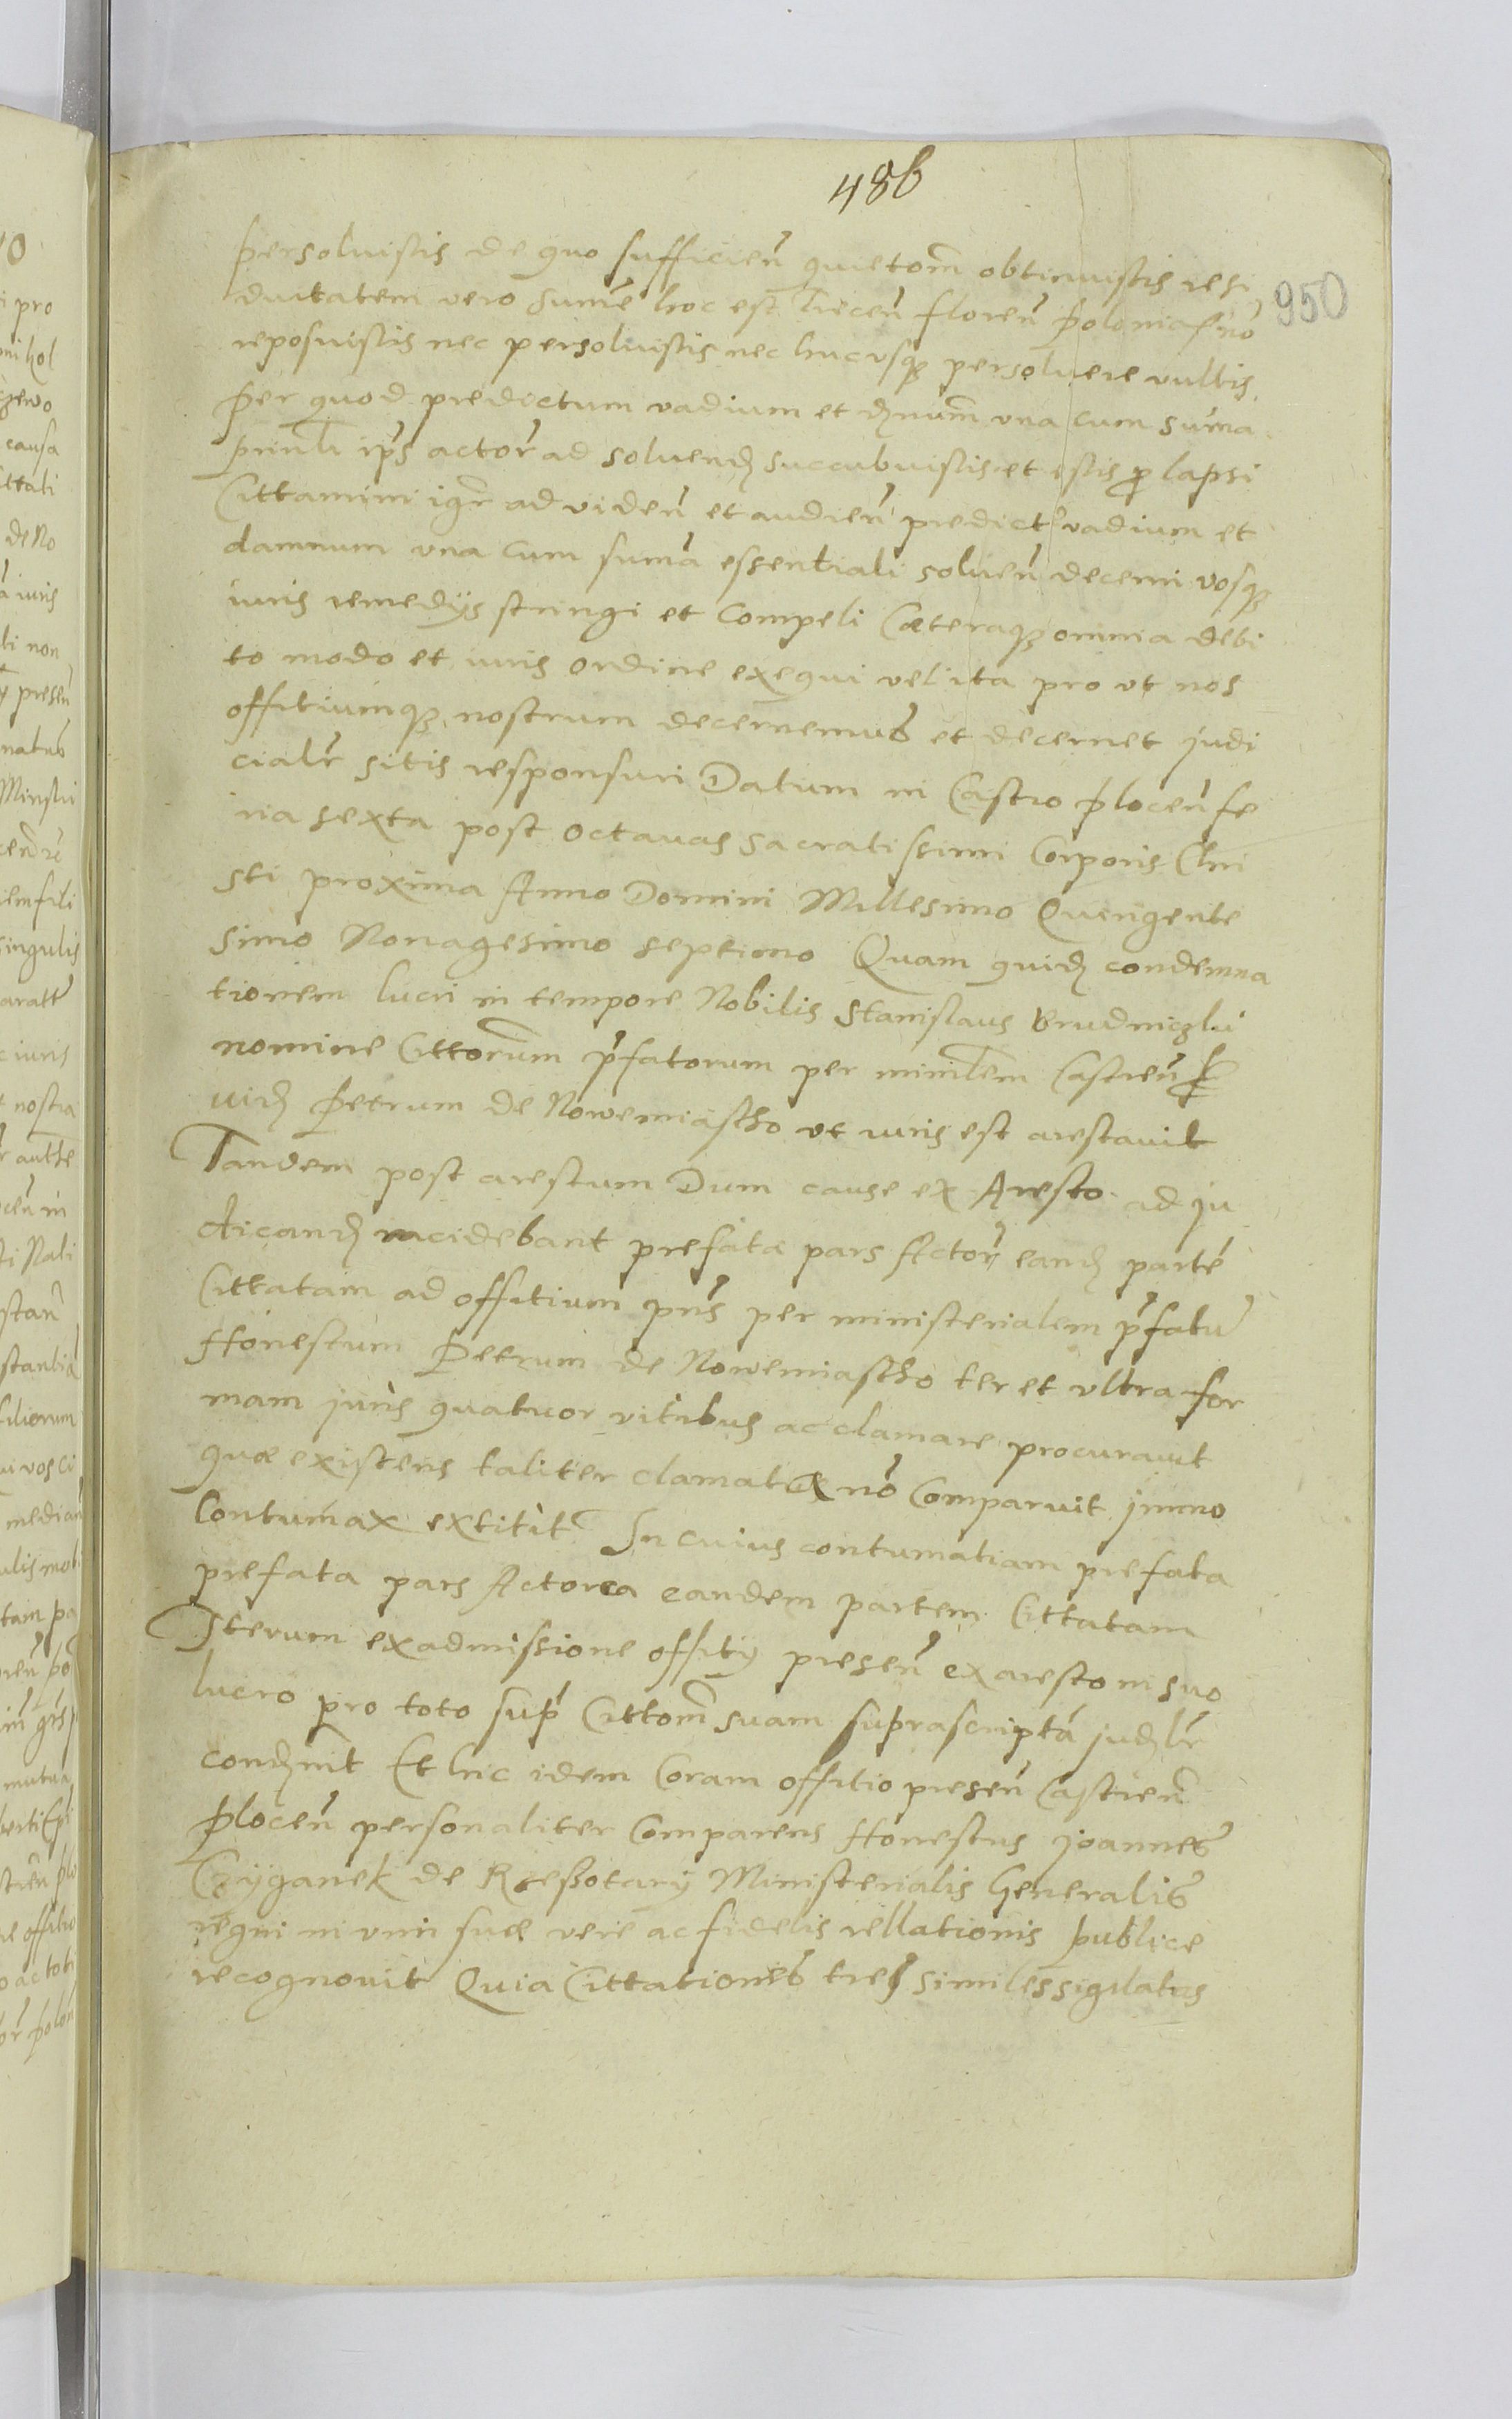 486
950
persoluistis de quo sufficien̄ quietom̄ obtinuistis resi
duitatem vero sum̄e hoc est Trecen̄ floren̄ Polonical no̅
reposuistis nec persoluistis nec hucusq₃ persoluere vultis
Per quod predictum vadium et dnum̄ vna cum suma
prinlī ip̄s actor̄ ad soluend succubuistis et estis plapsi
Cittamini igr̄ ad viden̄ et audien̄ predict̄ vadium et
damnum vna cum sumā essentiali soluen̄ decerni vosq₃
iuris remedÿs stringi et compeli Cæteraq₃ omnia debi
to modo et iuris ordine exequi vel ita pro vt nos
offitiumq₃ nostrum decernemus et decernet judi
cialr̄ sitis responsuri Datum in Castro Plocen̄ fe
ria sexta post octauas sacratissimi Corporis Chri
sti proxima Anno Domini Millesimo Quingente
simo Nonagesimo septimo Quam quid condemna
tionem lucri in tempore Nobilis Stanislaus Brudniczki
nomine Cittorum̄ p̄fatorum per minilem̄ Castren̄ p
uid Petrum de Nowemiastho vt iuris est arestauit
Tandem post arestum Dum cause ex Aresto ad ju
dicand incidebant prefatæ pars Actor̄ eand parte̅
Cittatam ad offitium pn̄s per ministerialem p̄fatu̅
Honestum Petrum de Nowemiastho ter et vltra for
mam juris quatuor vicibus acclamare procurauit
quæ existens taliter clamata no̅ Comparuit jmmo
Contumax extitit In cuius contumatiam prefata
prefata pars Actorea eandem partem Cittatam
Iterum ex admissione offitÿ presen̄ ex aresto in suo
lucro pro toto sup̄ Cittom̄ suam suprascripta̅ judlr̄
condnit Et hic idem Coram offitio presen̄ Castren̄
Plocen̄ personaliter Comparens Honestus Joannes
Czÿganek de Rzeßotarÿ Ministerialis Generalis
regni in vim suæ vere ac fidelis rellationis publice
recognouit Quia Cittationes tres similes sigilatas